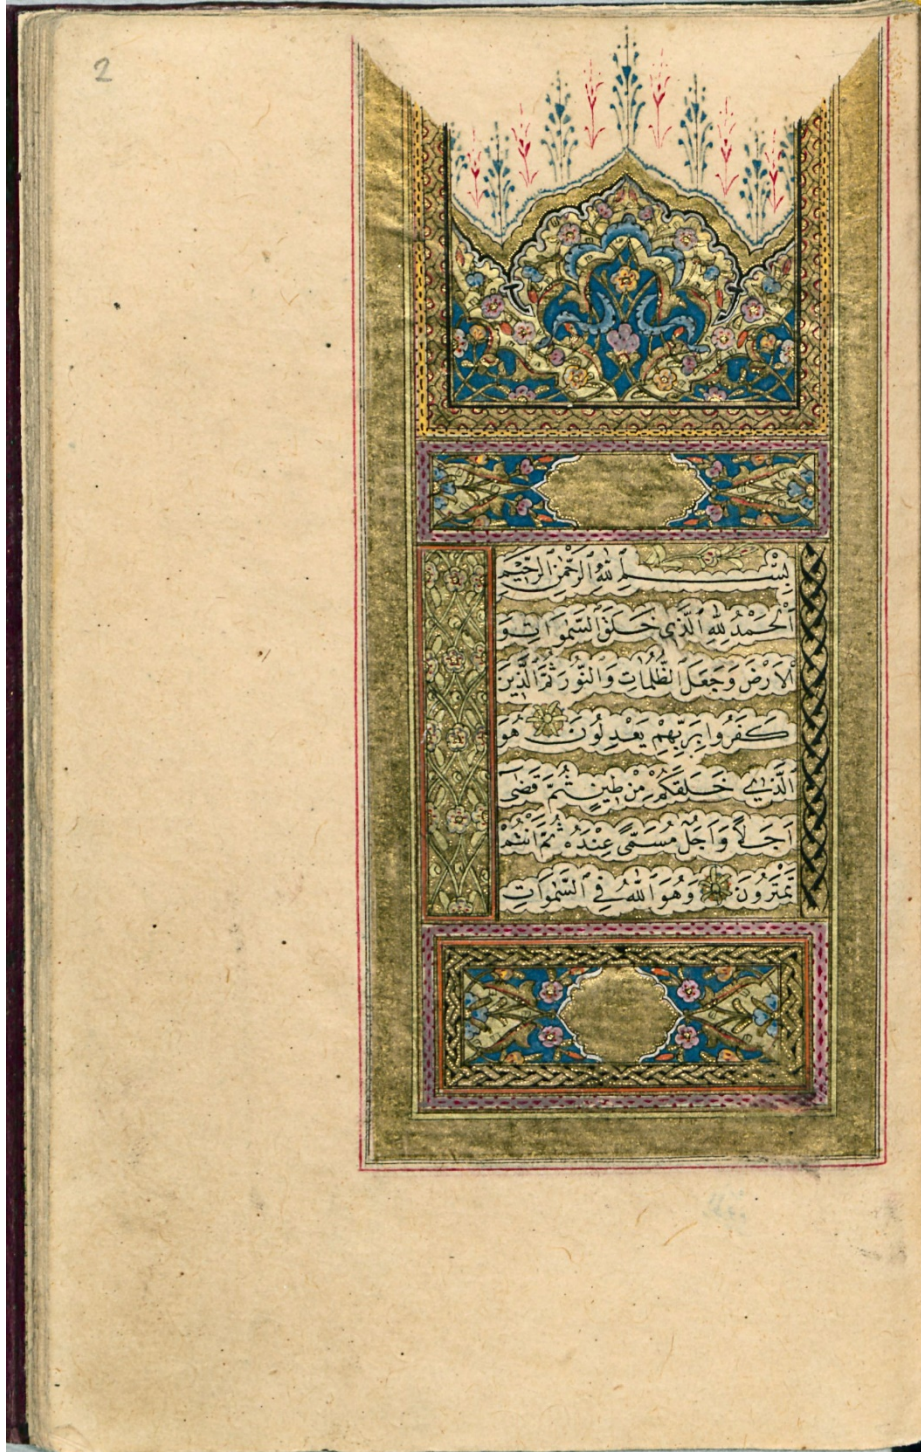 2
بِسْمِ اللهِ الرَّحْمٰنِ الرَّحٖيمِ
اَلْحَمْدُ لِلّٰهِ الَّذٖي خَلَقَ السَّمٰوَاتِ وَ
اْلاَرْضَ وَجَعَلَ الظُّلُمَاتِ وَالنُّورَ ثُمَّ الَّذٖينَ
كَفَرُوا بِرَبِّهِمْ يَعْدِلُونَ هُوَ
الَّذٖي خَلَقَكُمْ مِنْ طٖينٍ ثُمَّ قَضٰى
اَجَلاً وَاَجَلٌ مُسَمًّى عِنْدَهُ ثُمَّ اَنْتُمْ
تَمْتَرُونَ وَهُوَ اللهُ فِي السَّمٰوَاتِ